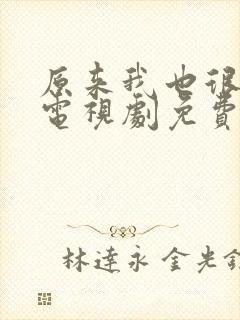 原来我也很
電視劇免費
林達永 金光鉉